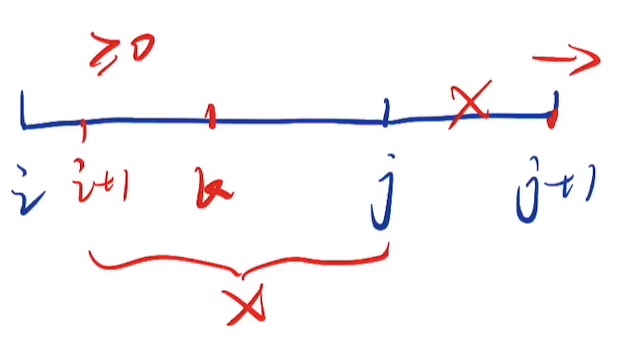 ≥0 →
×
i i+1 k j j+1
×